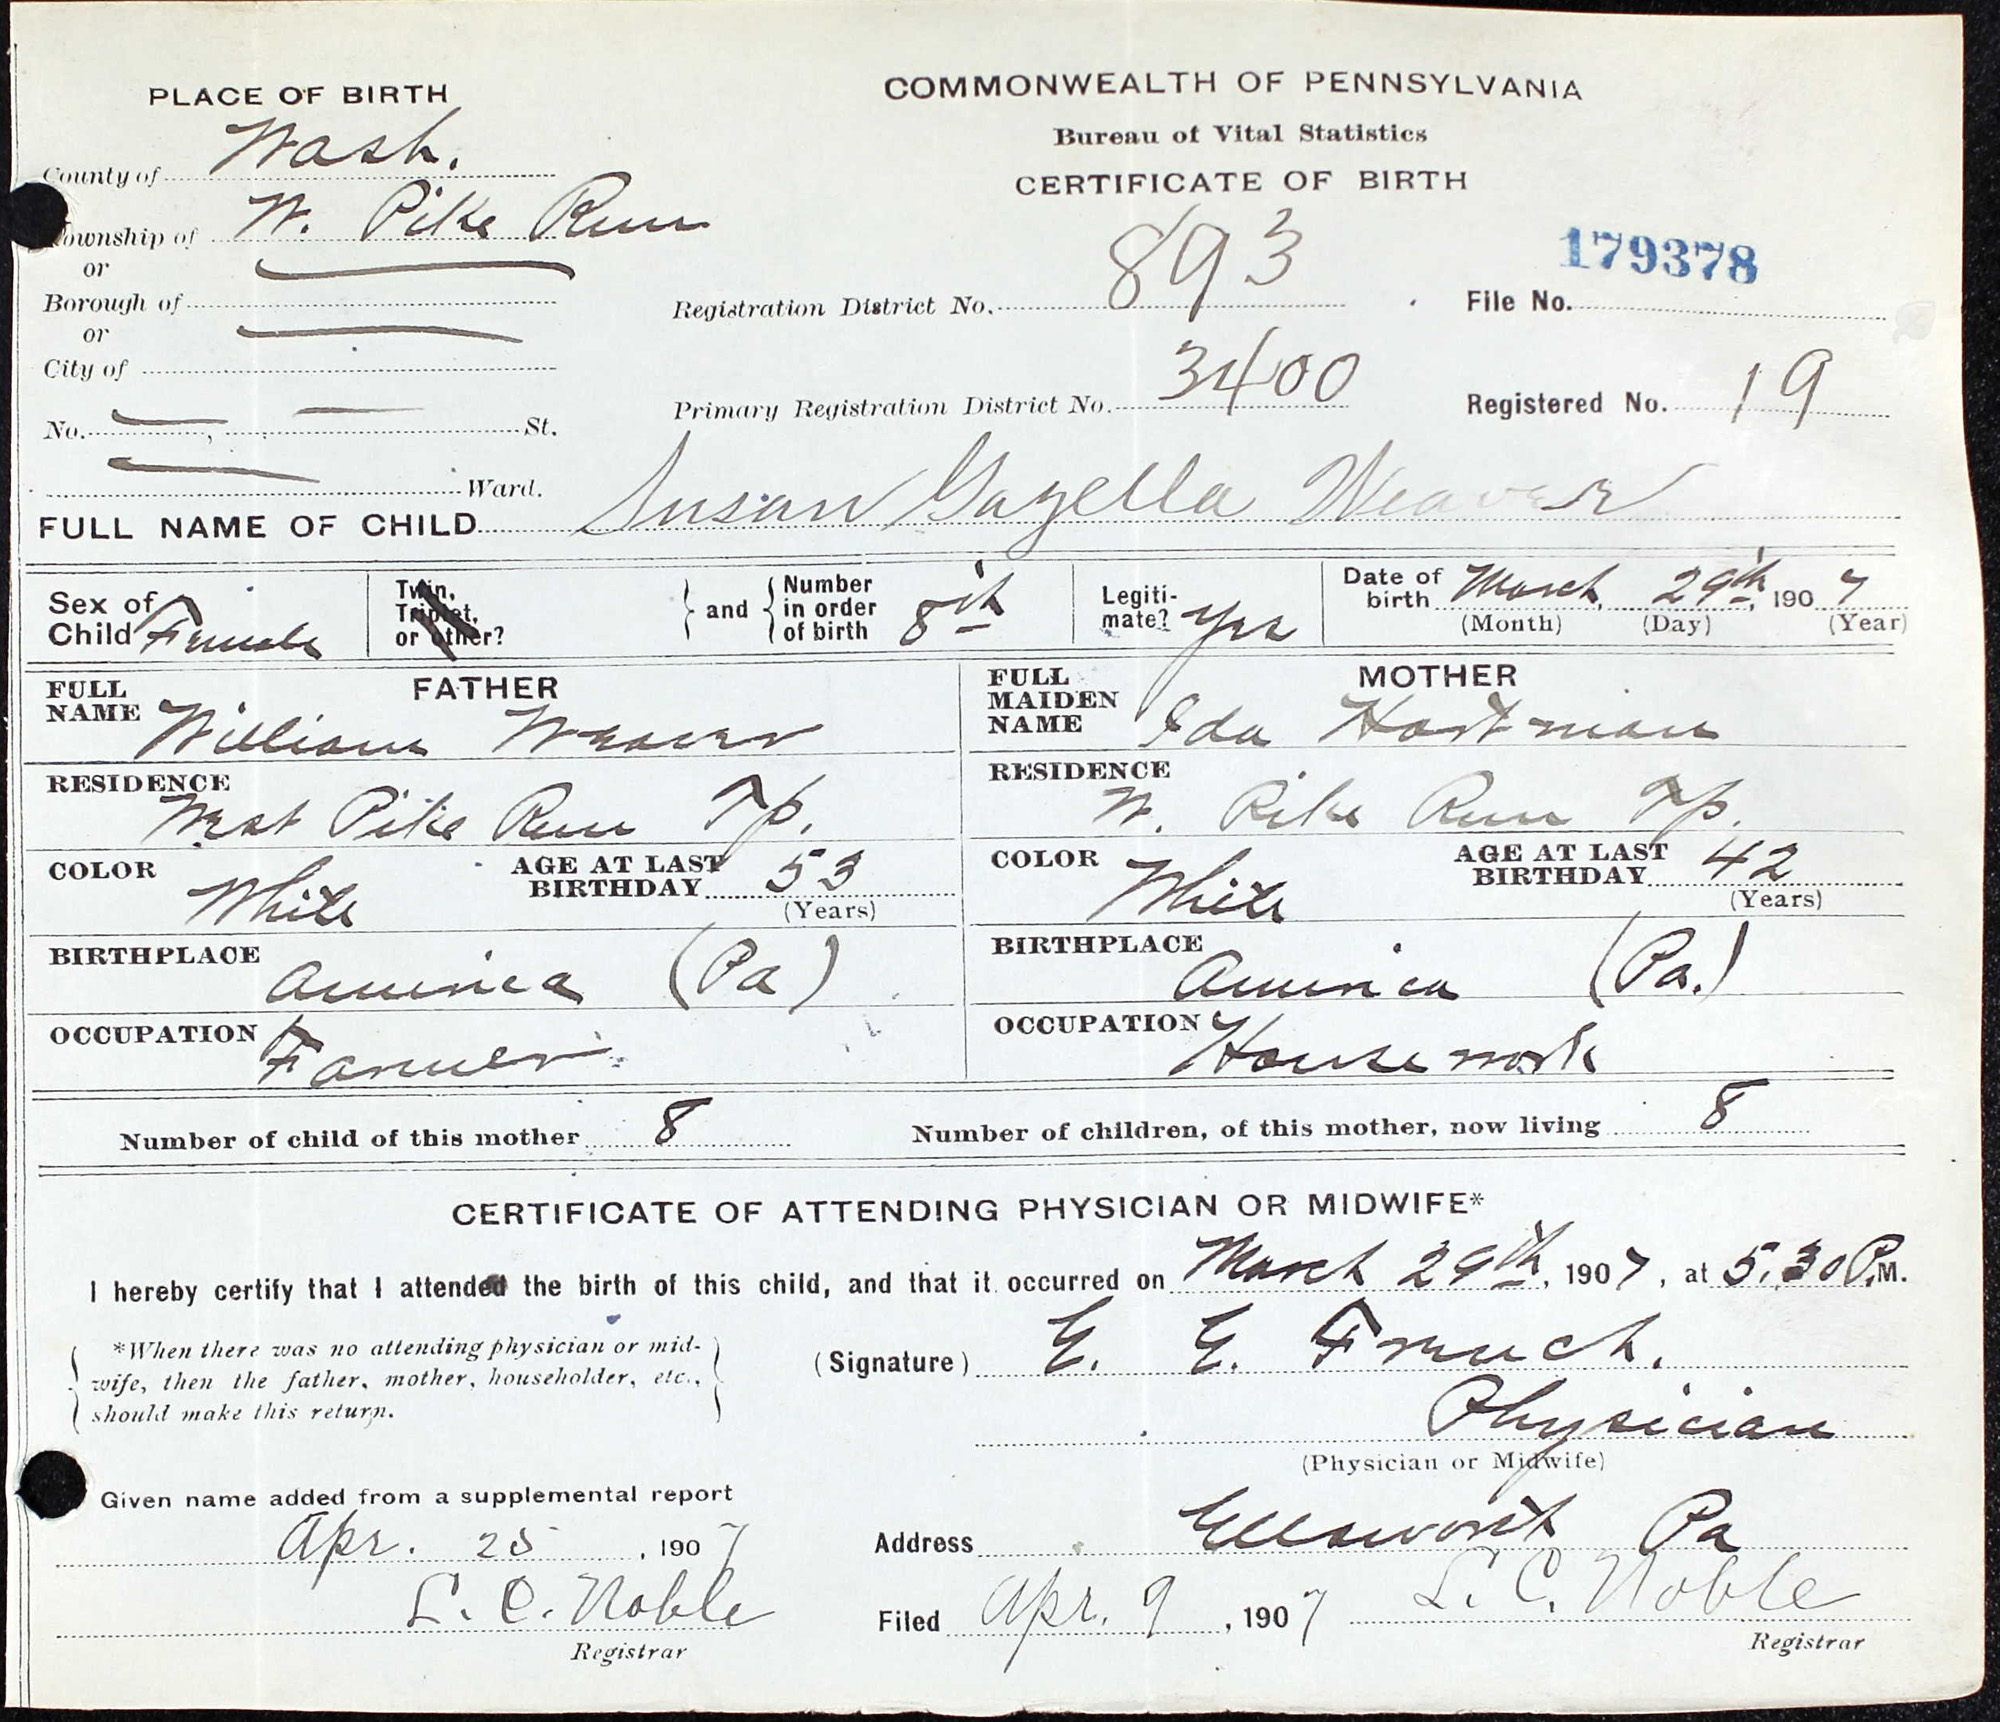 PLACE OF BIRTH
County of Wash.
Township of W. Pike Run
or
Borough of
or
City of
No. , St.
Ward.
COMMONWEALTH OF PENNSYLVANIA
Bureau of Vital Statistics
CERTIFICATE OF BIRTH
Registration District No. 893
179378
File No.
Primary Registration District No. 3400
Registered No. 19
FULL NAME OF CHILD Susan Gazella Weaver
Sex of Child Female
Twin, Triplet, or other?
and
Number in order of birth 8th
Legitimate? Yes
Date of birth March 29th, 1907
(Month) (Day) (Year)
FATHER
FULL NAME William Weaver
RESIDENCE
West Pike Run Tp.
COLOR White
AGE AT LAST BIRTHDAY 53
(Years)
BIRTHPLACE America (Pa)
OCCUPATION Farmer
MOTHER
FULL MAIDEN NAME Ida Hartman
RESIDENCE
W. Pike Run Tp.
COLOR White
AGE AT LAST BIRTHDAY 42
(Years)
BIRTHPLACE America (Pa.)
OCCUPATION Housework
Number of child of this mother 8
Number of children, of this mother, now living 8
CERTIFICATE OF ATTENDING PHYSICIAN OR MIDWIFE*
I hereby certify that I attended the birth of this child, and that it occurred on March 29th, 1907, at 5.30 P.M.
*When there was no attending physician or mid-
wife, then the father, mother, householder, etc.,
should make this return.
(Signature) E. E. French.
Physician
(Physician or Midwife)
Given name added from a supplemental report
Apr. 25, 1907
L. C. Noble
Registrar
Address Ellsworth Pa
Filed Apr. 9, 1907 L. C. Noble
Registrar